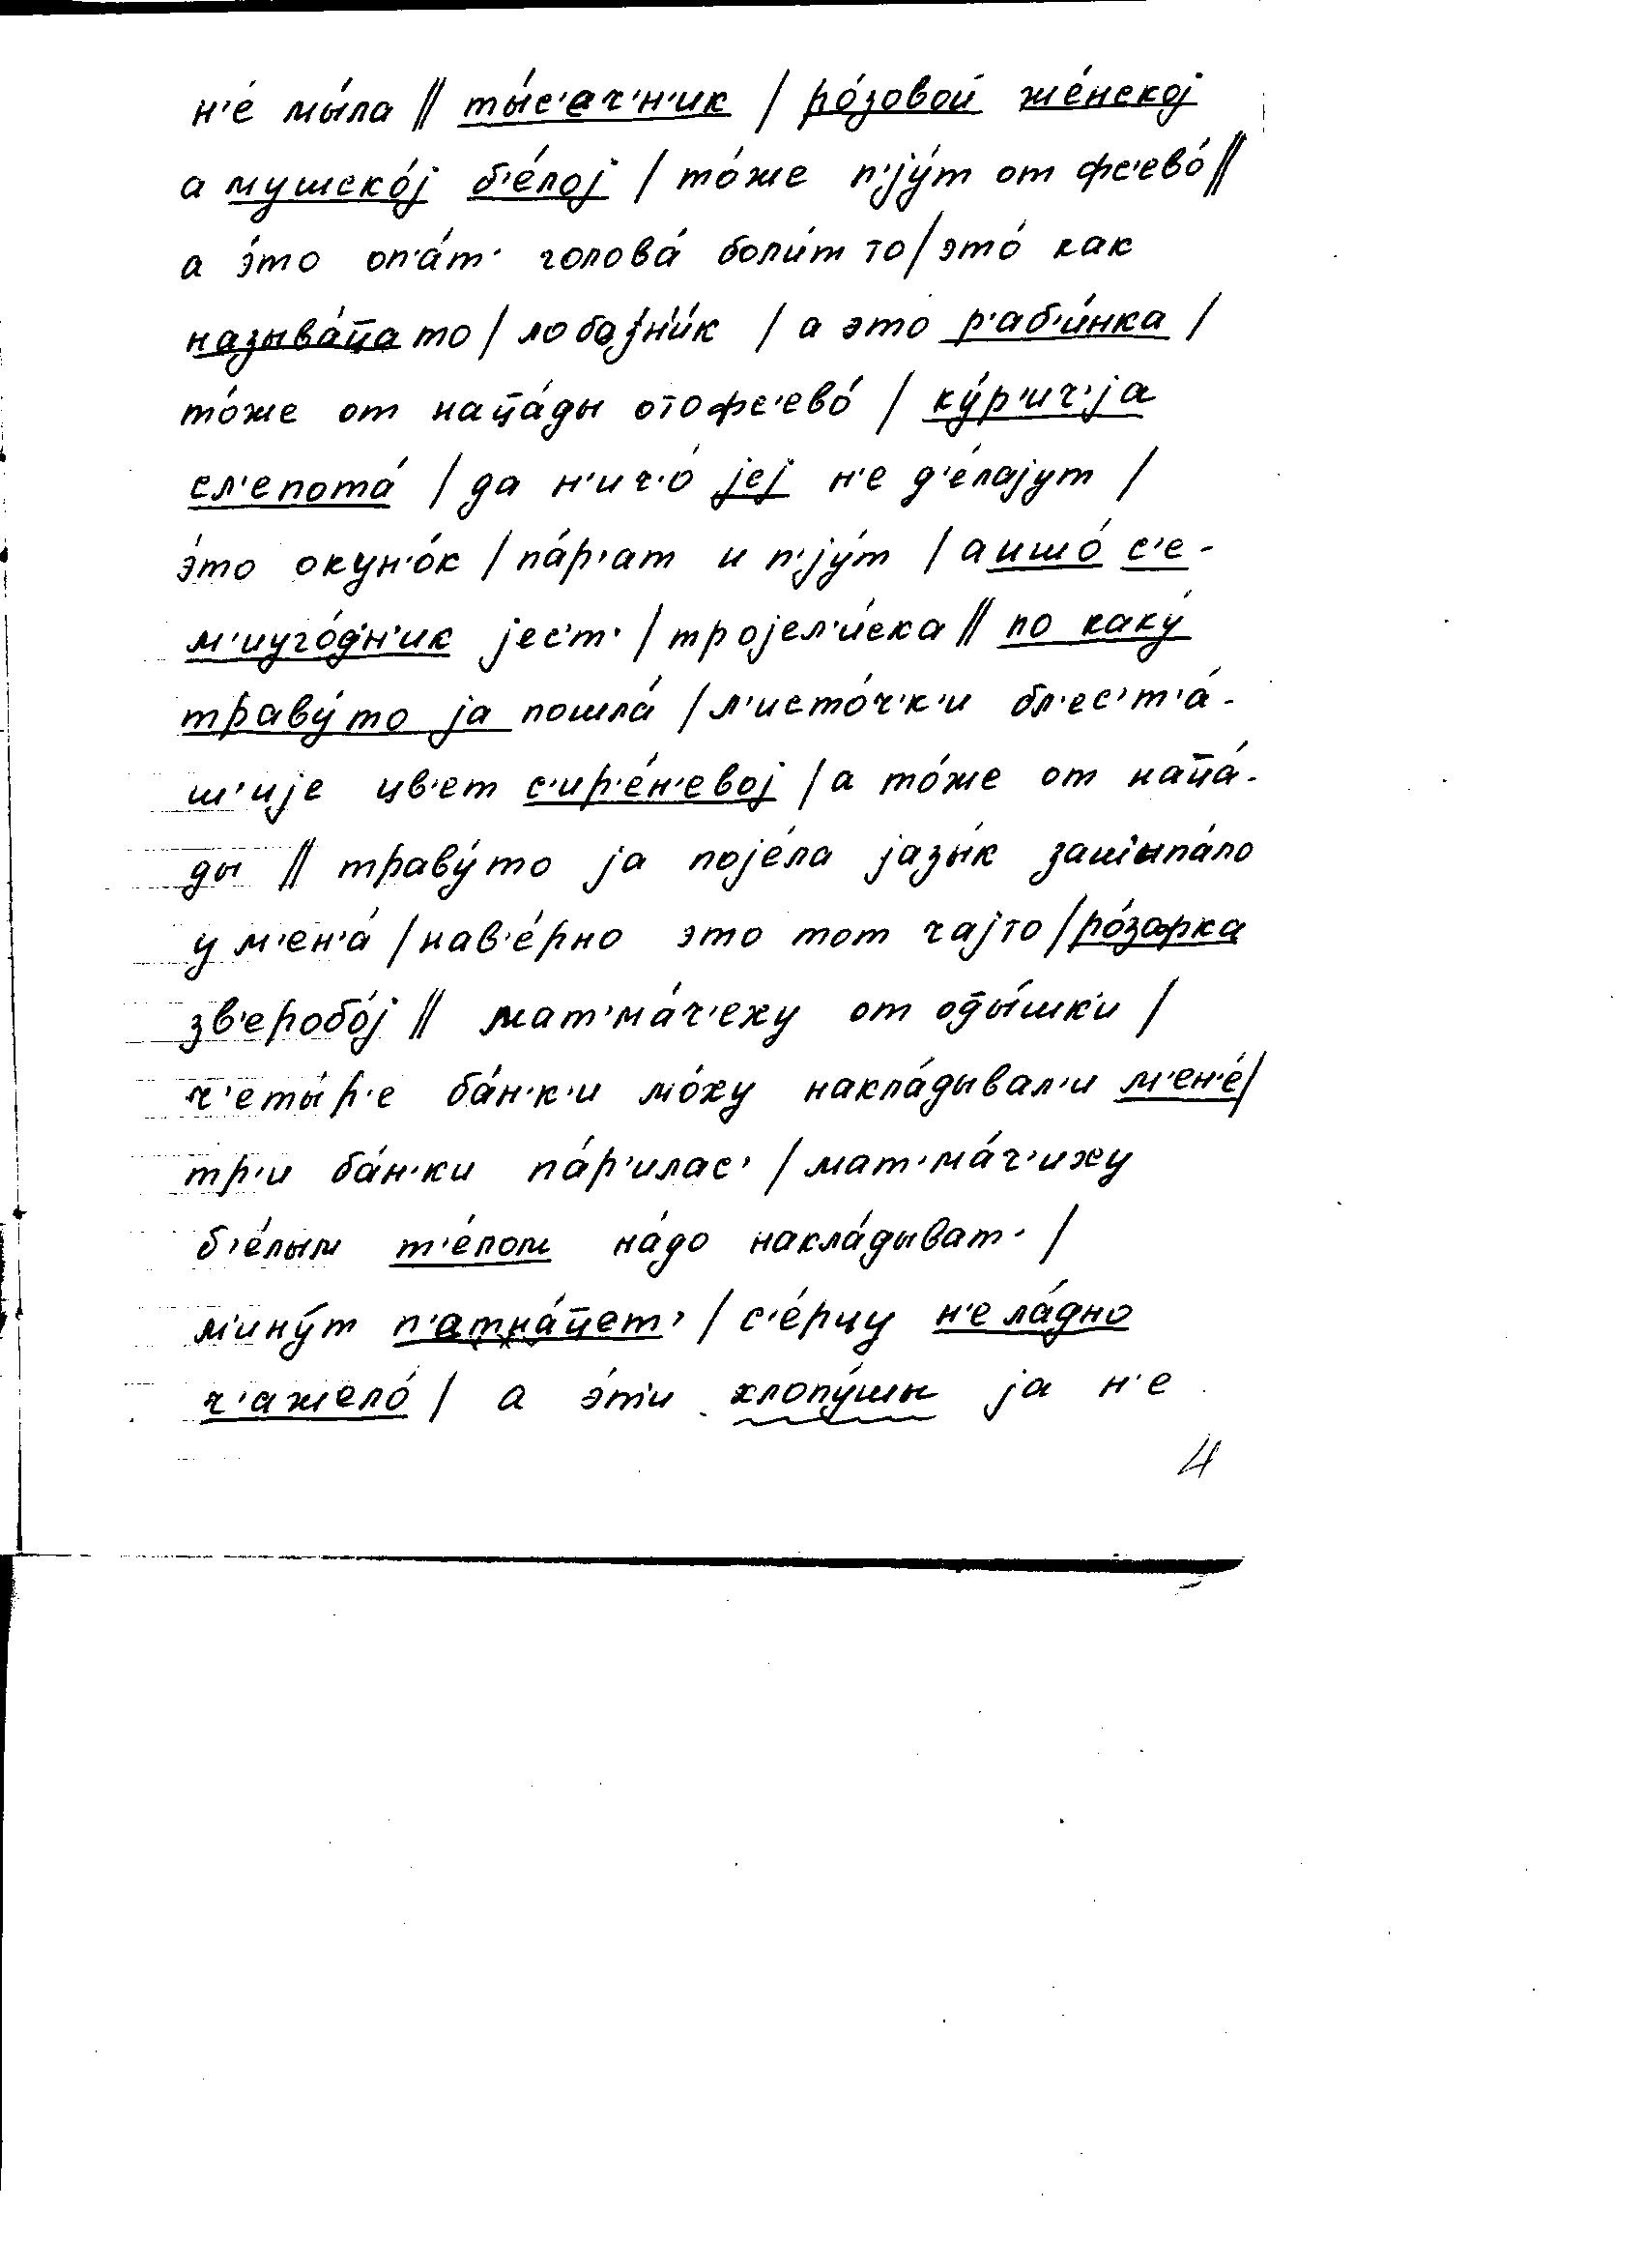 н'е́ мы́ла // ты́с'еч'н'ик / ро́зовой же́нској
а мушско́ј б'е́лој / то́же п'ју́т от фс'ево́ //
а э́то оп'а́т' голова́ боли́т то / это́ как
называ́ц̄а то / лобазн'и́к / а это р'аб'и́нка /
то́же от нац̄а́ды отофс'ево́ / ку́р'ич'ја
сл'епота́ / да н'ич'о́ јеј н'е д'е́лајут /
э́то окун'о́к / па́р'ат и п'ју́т / а ишо́ с'е-
м'иуго́д'н'ик јес'т' / тројел'и́ска // по каку́
траву́ то ја пошла́ / л'исто́ч'к'и бл'ес'т'а́-
ш'ије цв'ет с'ир'е́н'евој / а то́же от нац̄а́-
ды // траву́ то ја поје́ла јазы́к заш̄ыпа́ло
у м'ен'а́ / нав'е́рно это тот чајто / ро́зочка
зв'еробо́ј // мат'ма́ч'еху от од̄ы́шк'и /
ч'еты́р'е ба́н'к'и мо́ху накла́дывал'и м'ен'е́ /
тр'и ба́н'ки па́р'илас' / мат'ма́ч'иху
б'е́лым т'е́лом на́до накла́дыват' /
м'ину́т п'атна́ц̄ет' / с'е́рцу н'е ла́дно
ч'ажело́ / а э́т'и хлопу́шы ја н'е
4